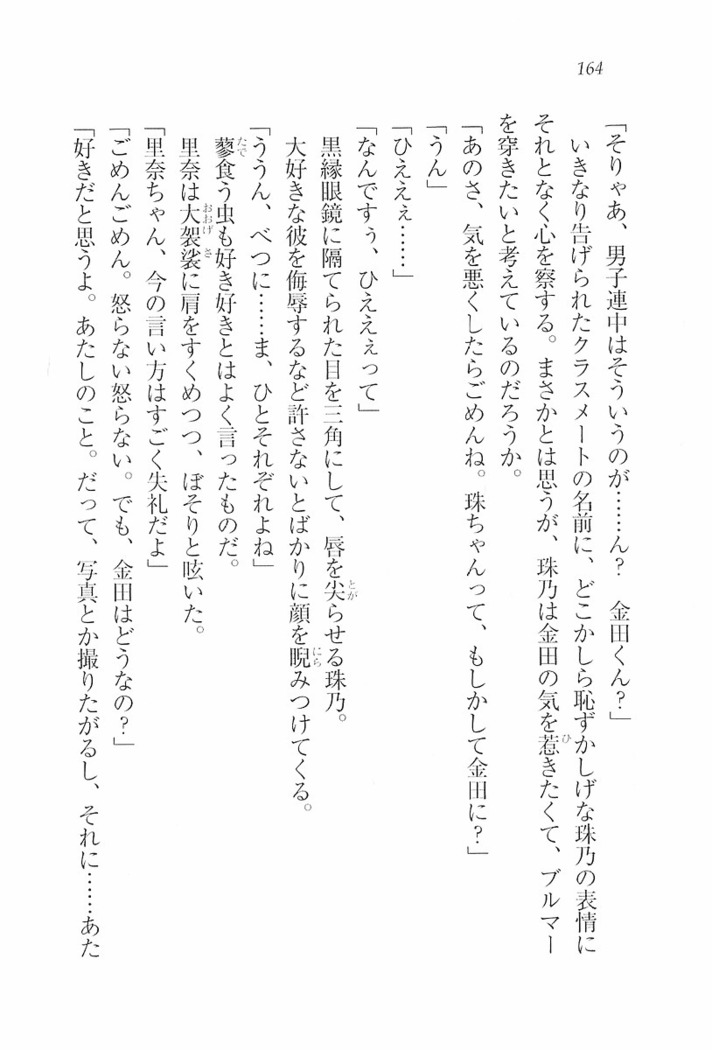 164
「そりゃあ、男子連中はそういうのが……ん？　金田くん？」
　いきなり告げられたクラスメートの名前に、どこかしら恥ずかしげな珠乃の表情に
それとなく心を察する。まさかとは思うが、珠乃は金田の気を惹きたくて、ブルマー
を穿きたいと考えているのだろうか。
「あのさ、気を悪くしたらごめんね。珠ちゃんって、もしかして金田に？」
「うん」
「ひえええぇ……」
「なんですぅ、ひえええぇって」
　黒縁眼鏡に隔てられた目を三角にして、唇を尖らせる珠乃。
　大好きな彼を侮辱するなど許さないとばかりに顔を睨みつけてくる。
「ううん、べつに……ま、ひとそれぞれよね」
　蓼食う虫も好き好きとはよく言ったものだ。
　里奈は大袈裟に肩をすくめつつ、ぼそりと呟いた。
「里奈ちゃん、今の言い方はすごく失礼だよ」
「ごめんごめん。怒らない怒らない。でも、金田はどうなの？」
「好きだと思うよ。あたしのこと。だって、写真とか撮りたがるし、それに……あた